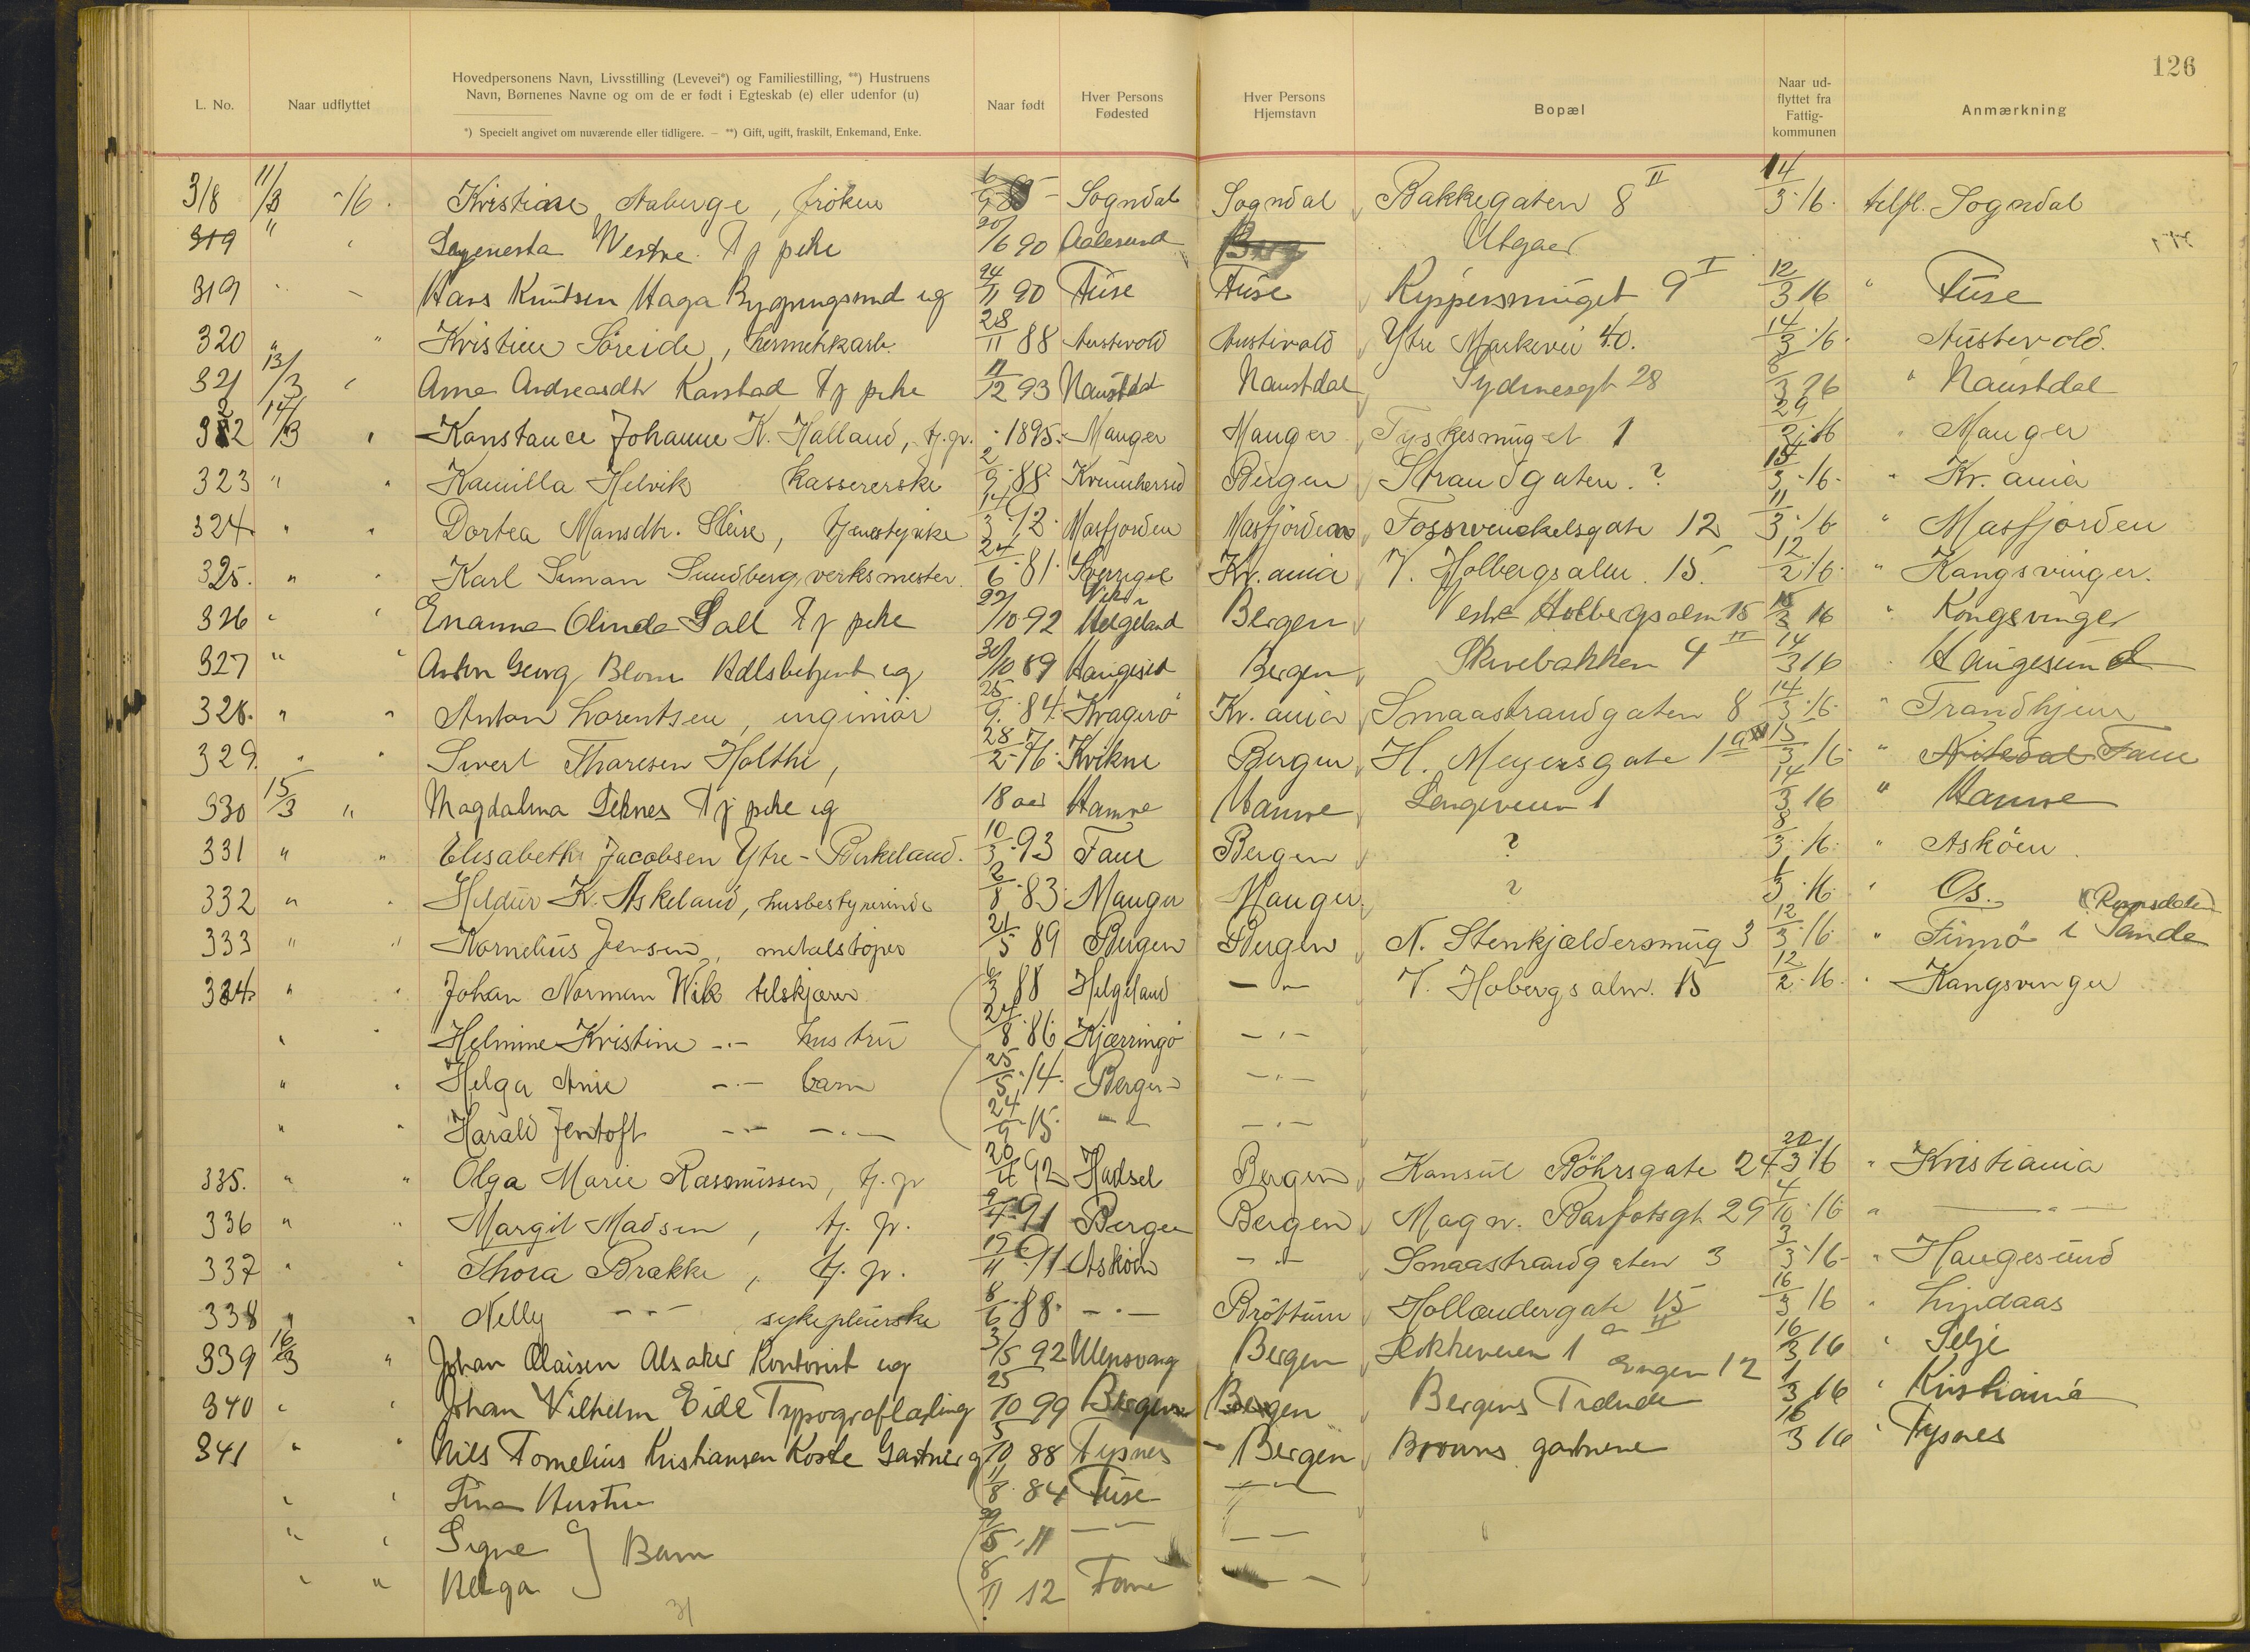 126
L. No. Naar udflyttet Hovedpersonens Navn, Livsstilling (Levevei*) og Familiestilling, **) Hustruens Navn, Børnenes Navne og om de er født i Egteskab (e) eller udenfor (u) Naar født Hver Persons Fødested Hver Persons Hjemstavn Bopæl Naar ud-flyttet fra Fattig-kommunen Anmærkning
*) Specielt angivet om nuværende eller tidligere. — **) Gift, ugift, fraskilt, Enkemand, Enke.
318 11/3 -16. Kristiane Aaberge, frøken Sogndal Sogndal Bakkegaten 8 II 14/3 16. telfl. Sogndal
319 " Vestre Tj pike 20/6 90 Aalesund Berg Utgaar
319 Hans Knutsen Haga Bygningssmd ug 24/11 90 Fuse Fuse Kippersmuget 9 I 12/3 16 " Fuse
320 " " Kristine Søreide, hermetikarb. 28/11 88 Austevold Austevold Ytre Markevei 40. 14/3 16 Austevold.
321 13/3 " Anna Andreasdtr Karstad Tj pike 11/12 93 Naustdal Naustdal Sydnesgt 28 8/3 16 " Naustdal
322 14/3 " Konstance Johanne K. Halland, tj.p. 1895. Manger Manger Tyskesmuget 1 29/2 16 " Manger
323 " " Kamilla Helvik kassererske 2/9 88 Kvinnherred Bergen Strandgaten. ? 14/3 16 " Kr.ania
324 " " Dortea Mansdtr. Sleire, tjenestepike 14/3 92 Masfjorden Masfjorden Fosswinckelsgate 12 11/3 16 " Masfjorden
325. " " Karl Siman Sundberg, verksmester 24/6 81 Sverrige Kr.ania V. Holbergsalm. 15. 12/2 16 " Kongsvinger.
326 " " Olinda Tj pike 22/10 92 Helgeland Bergen Vestre Holbergsalm 15 15/3 16 " Kongsvinger
327 " " Anton Georg Blom Hdlsbetjent ug 30/10 89 Haugesd Bergen Skivebakken 4 II 14/3 16 " Haugesund
328. " " Anton Lorentsen, ingeniør 25/9 84 Kragerø Kr.ania Smaastrandgaten 8 14/3 16 " Trondhjem
329. " " Sivert Thoresen Holthe, 28/2 76 Kvikne Bergen H. Meyersgate 1a 15/3 16 " Fane
330 15/3 " Magdalena Teknes Tj pike ug 18 aar Hamre Hamre Langeveien 1 14/3 16 " Hamre
331 " " Elisabeth Jacobsen Ytre-Birkeland. 10/3 93 Fane Bergen ? 8/3 16 " Askøen
332 " " Heldur K. Askeland, husbestyrerinde 2/8 83 Manger Manger ? 1/3 16 " Os.
333 " " Kornelius Jensen, metalstøper 21/5 89 Bergen Bergen N. Stenkjældersmug 3 12/3 16 " Finnø i Sande (Romsdalen)
334 " " Johan Norman Wik tilskjærer 6/3 88 Helgeland -"- V. Hobergsalm. 15 12/2 16 " Kongsvinger
" " Helmine Kristine -"- hustru 24/8 86 Kjærringø -"-
" " Helga Anie -"- barn 25/5 14 Bergen -"-
" " Harald Jentoft -"- -"- 24/9 15 -"- -"-
335. " " Olga Marie Rasmussen, tj.p 20/4 92 Hadsel Bergen Konsul Bøhrsgate 24 20/3 16 " Kristiania
336 " " Margit Madsen, tj. p. 91 Bergen Bergen Magn. Barfotsgt. 29 4/10 16 " -"-
337 " " Thora Brække, tj. p. 19/11 91 Askøen -"- Smaastrandgaten 3 3/3 16 " Haugesund
338 " " Nelly -"- sykepleierske 8/6 88 -"- Brøttum Hollendergate 15 16/3 16 " Lindaas
339 16/3 " Johan Olaisen Alsaker Kontorist ug 3/5 92 Ullensvang Bergen 1 a II Engen 12 16/3 16 " Selje
340 " " Johan Vilhelm Eide Typograflærling 25/10 99 Bergen Bergen Bergens Tidende 1/3 16 " Kristiania
341 " " Nils Tomelius Kristiansen Koste Gartner g 5/10 88 Tysnes Bergen Brouns gartneri 16/3 16 " Tysnes
" " Tina Hustru 11/8 84 Fuse -"-
" " Signe } Barn 29/5 11 -"- -"-
" " Helga 8/11 12 Fane -"-
31